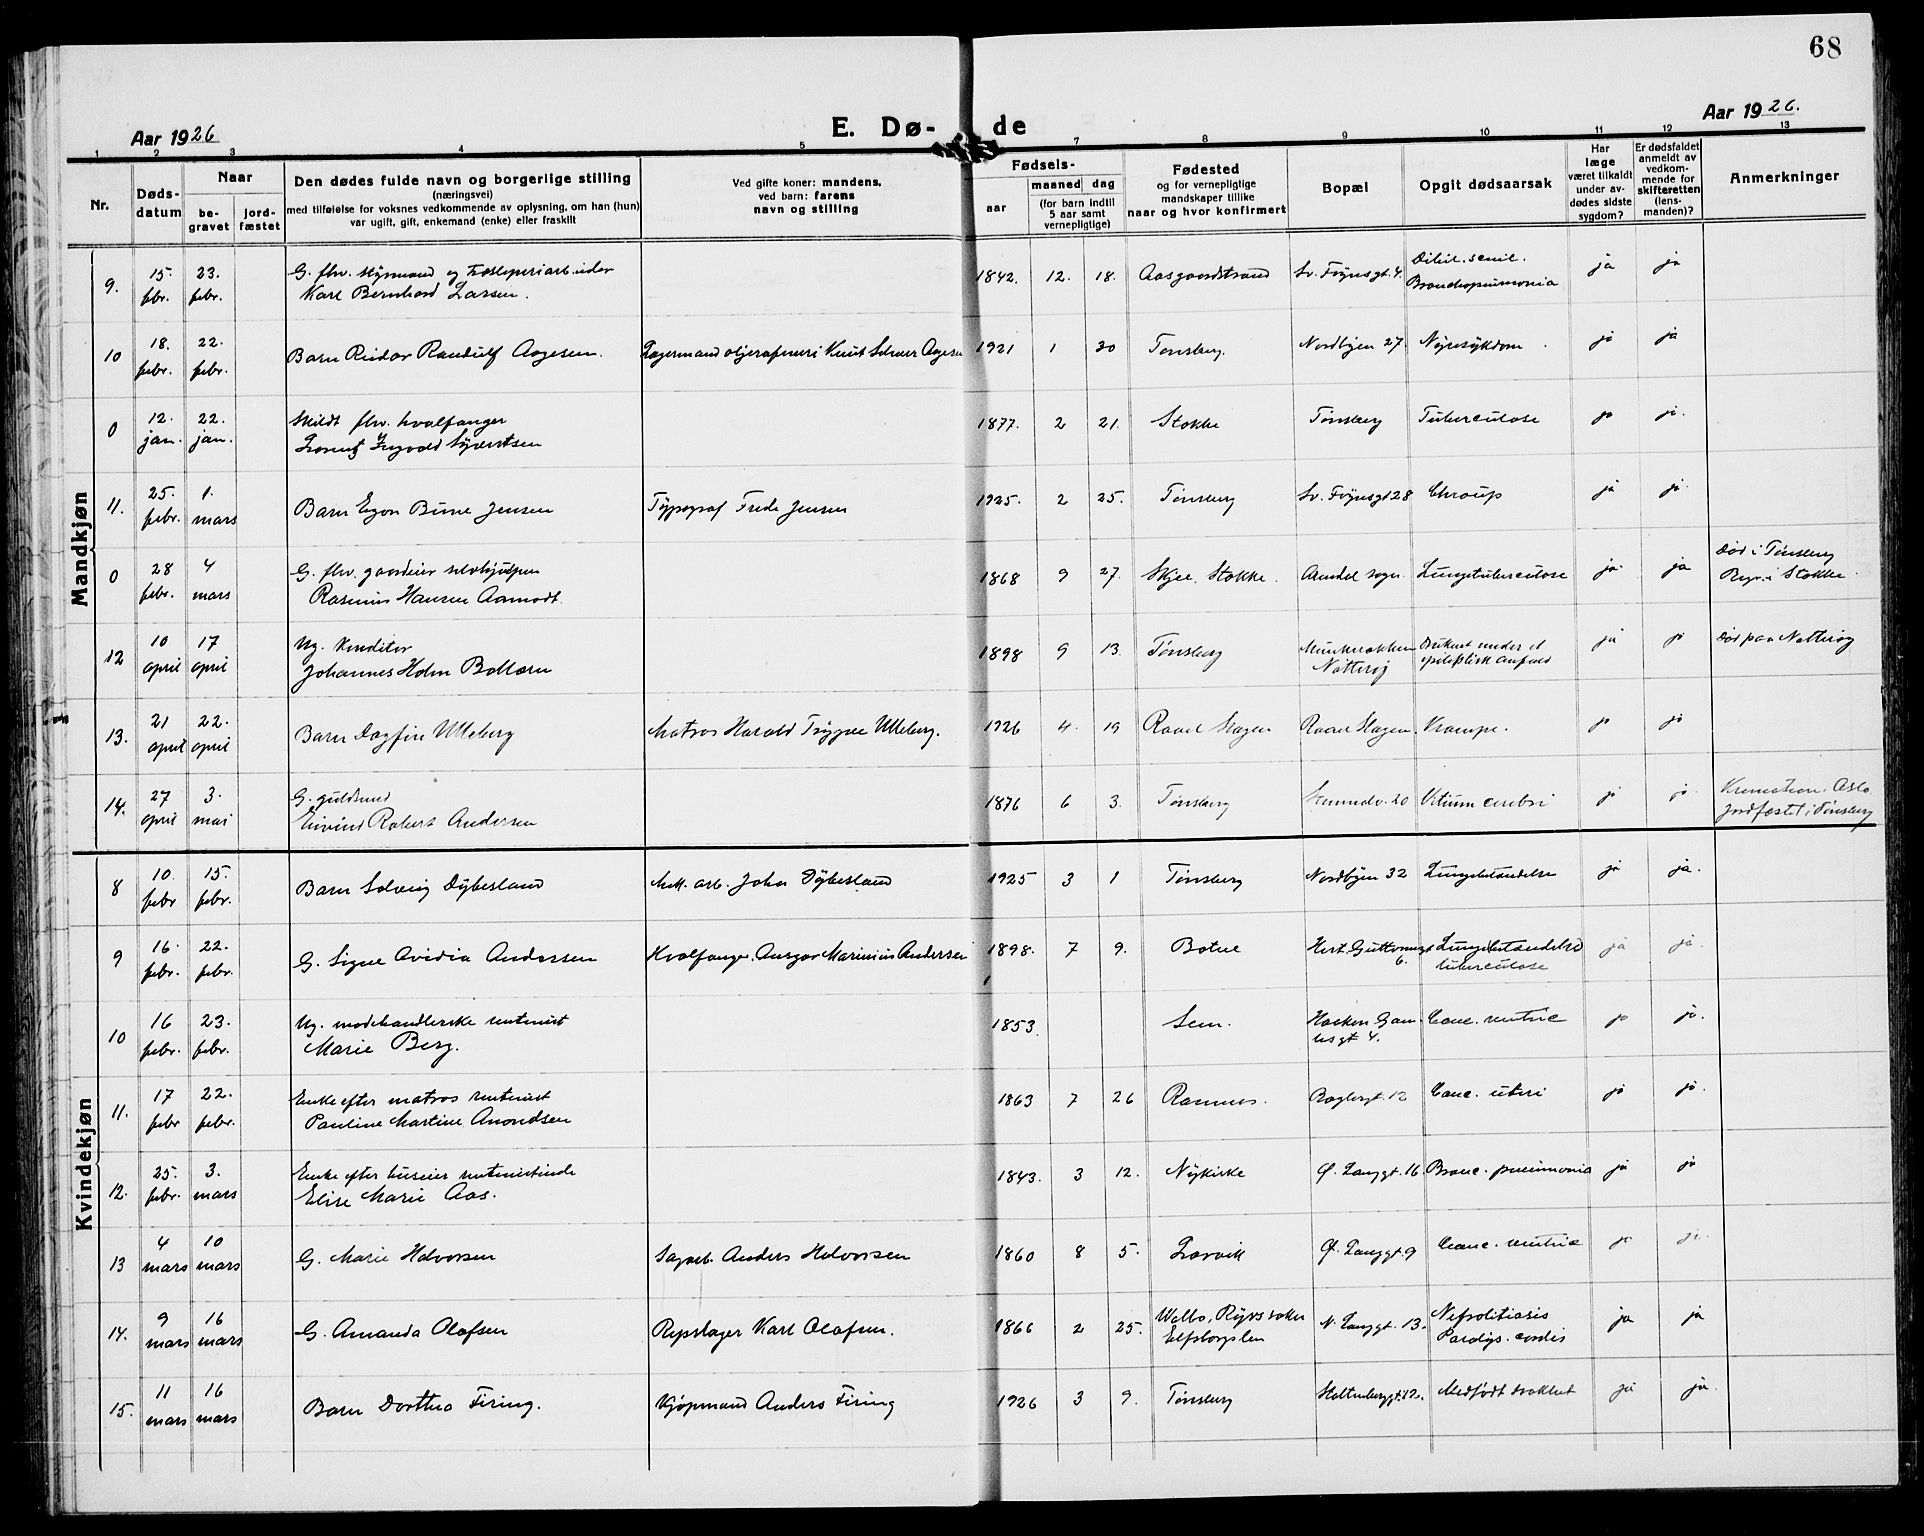 68
Aar 1926
E. Dø-de
Aar 1926.
1 2 3 4 5 7 8 9 10 11 12 13
Nr.
Døds-
datum
Naar
be-
gravet
jord-
fæstet
Den dødes fulde navn og borgerlige stilling
(næringsvei)
med tilføielse for voksnes vedkommende av oplysning, om han (hun)
var ugift, gift, enkemand (enke) eller fraskilt
Ved gifte koner: mandens,
ved barn: farens
navn og stilling
Fødsels-
aar
maaned dag
(for barn indtil
5 aar samt
vernepligtige)
Fødested
og for vernepligtige
mandskaper tillike
naar og hvor konfirmert
Bopæl
Opgit dødsaarsak
Har
læge
været tilkaldt
under av-
dødes sidste
sygdom?
Er dødsfaldet
anmeldt av
vedkom-
mende for
skifteretten
(lens-
manden)?
Anmerkninger
Mandkjøn
9. 15. febr. 23. febr. G. fhv. styrmand og
Karl Bernhard Larsen. 1842. 12. 18. Aasgaardstrand Sv. Foynsgt. 4. Debil. senil.
Bronchopneumonia ja ja
10 18. febr. 22. febr. Barn Reidar Randulf Aagesen. Lagermand oljerafineri Knut Aagesen 1921 1 30 Tønsberg. Nordbyen 27 Nyresykdom. ja ja
0 12. jan. 22. jan. Skildt fhv. hvalfanger
Lorentz Ingvald Syvertsen 1877. 2 21. Stokke Tønsberg Tuberculose ja ja.
11. 25. febr. 1. mars Barn Egon Bune Jensen Typograf Frede Jensen 1925. 2 25. Tønsberg Sv. Foynsgt 28 Chroup ja ja
0 28 febr. 4 mars G. fhv. gaardeier selvhjulpen
Rasmus Hansen Aamodt. 1868 9 27. Skjee, Stokke. Arendal sogn. Lungetuberculose ja ja Død i Tønsberg
Begr. i Stokke.
12 10 april 17 april Ug. Konditor
Johannes Holm Bollærn 1898 9 13. Tønsberg Munkerekken
Nøtterøy Druknet under et
epileptisk anfald ja ja Død paa Nøtterøy
13. 21 april 22. april Barn Dagfin Ulleberg Matros Harald Trygve Ulleberg. 1926 4. 19 Raael Slagen Raael Slagen Krampe. ja ja
14. 27 april 3. mai G. guldsmed
Eivind Robert Andersen 1876 6 3. Tønsberg 20 Vitium cordis ja ja. Kremation. Oslo.
Jordfæstet i Tønsberg
Kvindekjøn
8 10. febr 15. febr. Barn Solveig Dybesland Mek. arb. John Dybesland 1925 3 1 Tønsberg Nordbyen 32 Lungebetændelse ja ja.
9 16. febr. 22. febr. G. Signe Ovidia Andersen Hvalfanger. Ansgar Marinius Andersen 1898. 7 9. Botne Hert. Guttormsgt
6. Lungebetændelse
tuberculose ja ja.
10 16 febr. 23. febr. Ug. modehandlerske rentenist
Marie Berg. 1853. Sem. Haakon Gam-
lesgt 4. Canc. ventric ja ja.
11. 17 febr 22. febr. Enke efter matros rentenist
Pauline Martine Anondsen 1863 7 26 Ramnes. 12 Canc. uteri ja ja.
12. 25. febr. 3. mars Enke efter huseier
Elise Marie Aas. 1843. 3 12. Nykirke Ø. Langgt. 16 Bronc. pneumonia ja ja
13 4 mars 10 mars G. Marie Halvorsen Sagarb. Anders Halvorsen 1860 8 5. Larvik Ø. Langgt. 9 Canc. ventric ja ja.
14. 9 mars 16 mars G. Amanda Olafsen Repslager Karl Olafsen. 1866 2 25.
Elfsborgslen N. Langgt. 13. Nefrolitiasis
Paralys. cordis ja ja
15. 11 mars 16 mars Barn Dorthea Firing. Kjøpmand Anders Firing 1926 3 9. Tønsberg Stoltenberggt. 12. Medfødt svakhet ja ja.